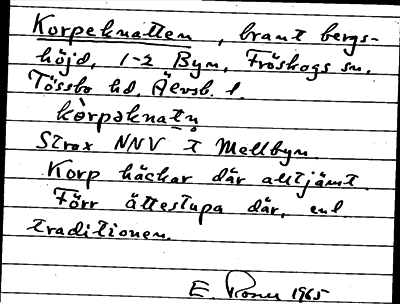 Korpeknatten, brant bergs-
höjd, 1-2 Byn, Fröskogs sn,
Tössbo hd, Älvsb. l.
kòrpəknatn̥
Strax NNV t Mellbyn
Korp häckar där alltjämt.
Förr ättestupa där, enl
traditionen.
E. 1965